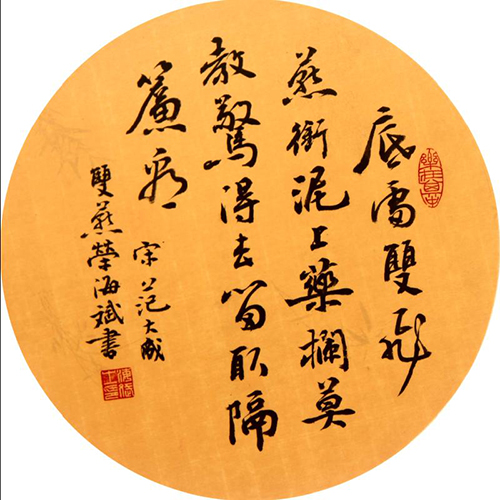 底處雙飛
燕銜泥上藥欄莫
教驚得去留取隔
簾看
宋 范大成
雙燕榮海斌書